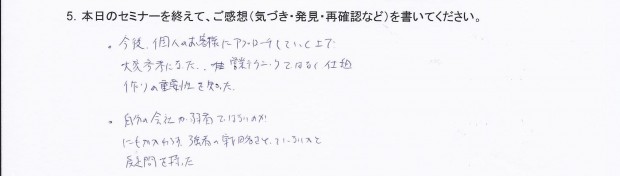 5. 本日のセミナーを終えて、ご感想（気づき・発見・再確認など）を書いてください。
・今後、個人のお客様にアプローチしていく上で
大変参考になった。営業テクニックではなく仕組
作りの重要性を知った。
・自分の会社が弱者ではないのか
にもかかわらず、強者の戦略をとっていないかと
疑問を持った